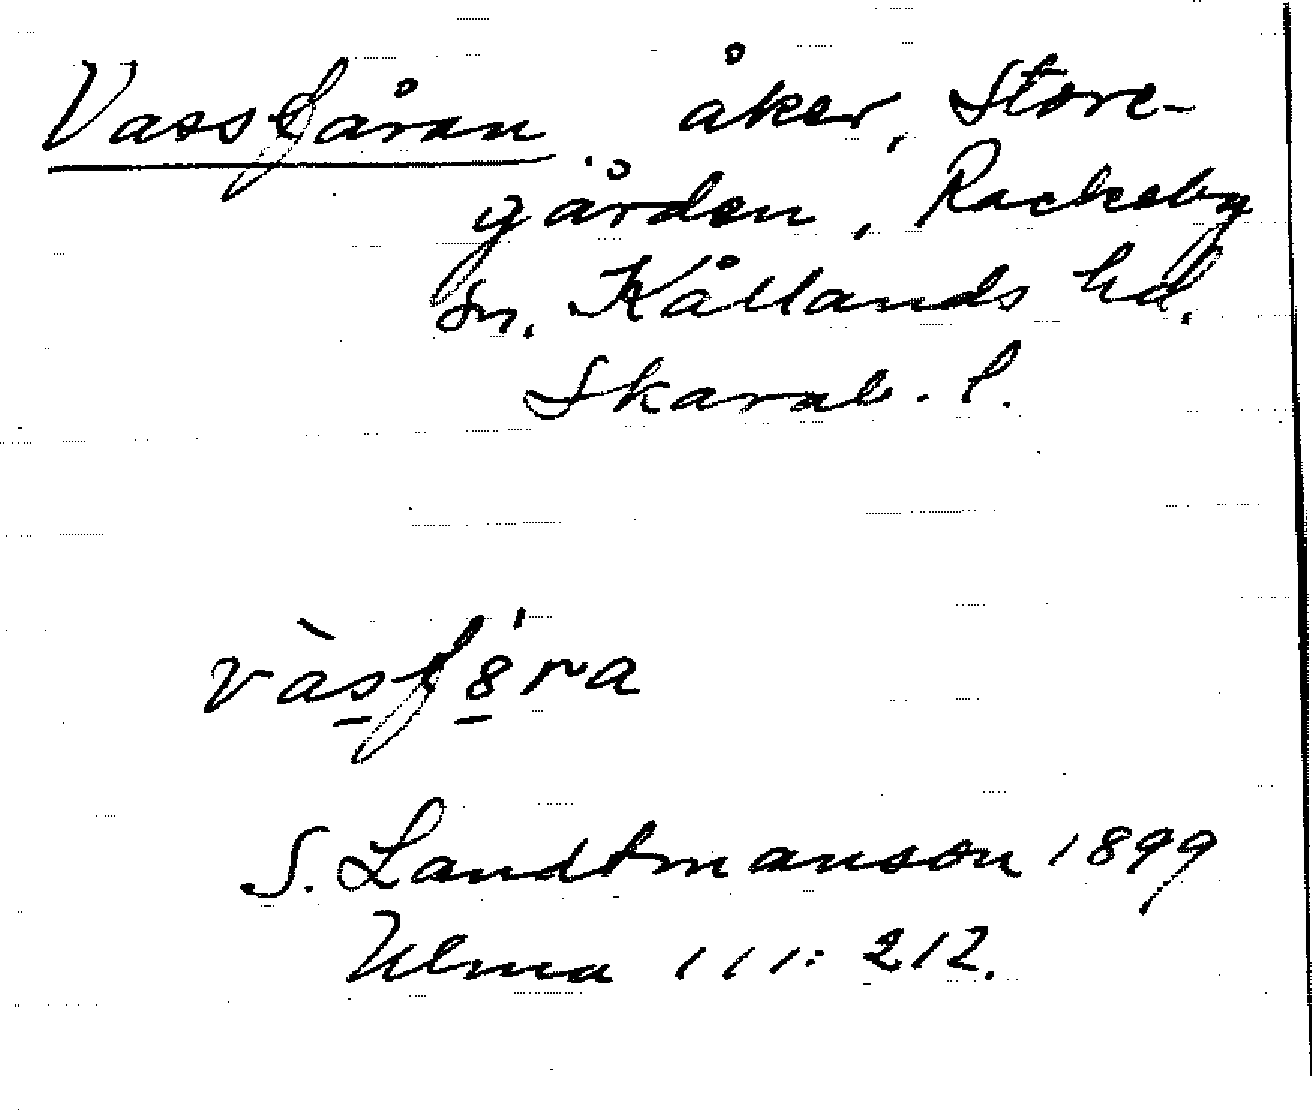 Vassfåran åker, Store-
gården, Rackeby
sn. Kållands hd.
Skarab. l.
vàsf8́ra
S. Landtmanson 1899
Ulma 111: 212.